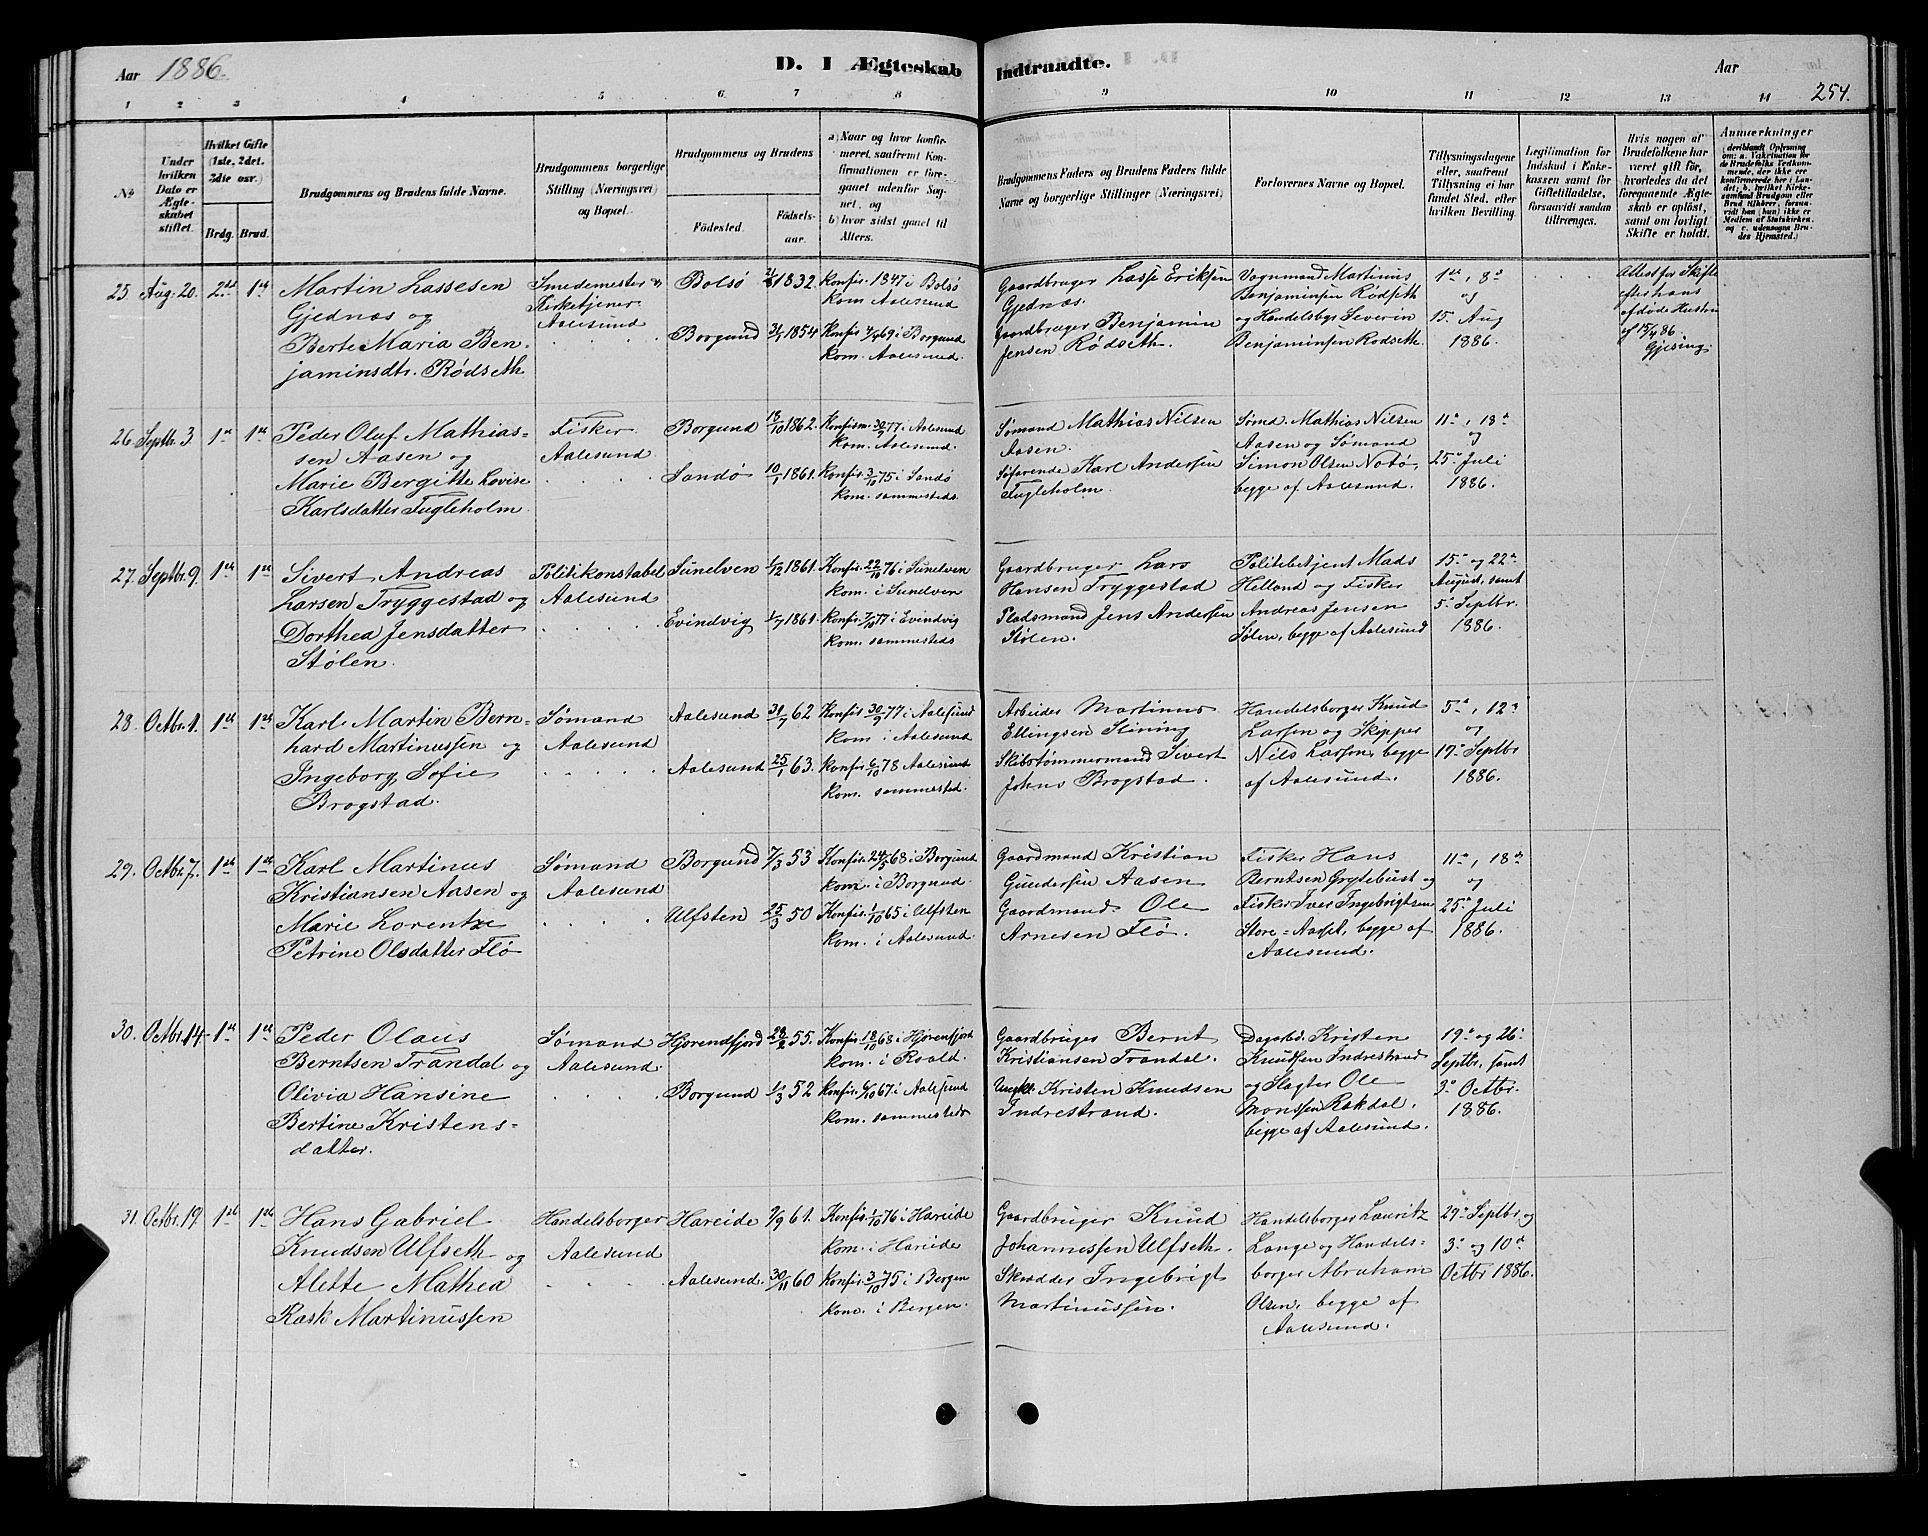 Aar 1886.
D. I Ægteskab Indtraadte.
Aar
254.
1 2 3 4 5 6 7 8 9 10 11 12 13 14
No
Under hvilken Dato er Ægteskabet stiftet.
Hvilket Gifte (1ste, 2det, 3die osv.)
Brdg. Brud.
Brudgommens og Brudens fulde Navne.
Brudgommens borgerlige Stilling (Næringsvei) og Bopæl.
Brudgommens og Brudens
Fødested.
Fødselsaar.
a) Naar og hvor konfirmeret, saafremt Konfirmationen er foregaaet udenfor Sognet, og
b) hvor sidst gaaet til Alters.
Brudgommens Faders og Brudens Faders fulde Navne og borgerlige Stillinger (Næringsvei)
Forlovernes Navne og Bopæl.
Tillysningsdagene eller, saafremt Tillysning ei har fundet Sted, efter hvilken Bevilling.
Legitimation for Indskud i Enkekassen samt for Giftetilladelse, forsaavidt saadan tiltrænges.
Hvis nogen af Brudefolkene har været gift før, hvorledes da det foregaaende Ægteskab er opløst, samt om lovligt Skifte er holdt.
Anmærkninger
25 Aug. 20. 2det 1ste
Martin Lassesen
Gjednæs og
Berte Maria Ben-
jaminsdtr. Rødseth
Smedemester og
Kirketjener
Aalesund
Bolsø 1832.
Borgund 1854
Konfir. 1847 i Bolsø
kom Aalesund
Konfir. 69 i Borgund
kom. Aalesund.
Gaardbruger Lasse Eriksen
Gjednæs.
Gaardbruger Benjamin
Jensen Rødseth.
Vognmand Martinus
Benjaminsen Rødseth
og Handelsbgr Severin
Benjaminsen Rødseth
1ste, 8de
og
15. Aug
1886.
Attest for Skifte
efter hans
afdøde Hustru
af 15/4 86.
Gjesing.
26 Septbr. 3. 1ste 1ste
Peder Oluf Mathias=
sen Aasen og
Marie Bergitte Lovise
Karlsdatter Fugleholm
Fisker
Aalesund
Borgund 18/10 1862.
Sandø 10/1 1861.
Konfirm. 30/9 77 i Aalesund
kom. Aalesund.
Konfir. 3/10 75 i Sandø
kom. sammesteds.
Sømand Mathias Nilsen
Aasen.
Søfarende Karl Andersen
Fugleholm.
Sømd. Mathias Nilsen
Aasen og Sømand
Simon Olsen Notø,
begge af Aalesund.
11te, 18de
og
25de Juli
1886.
27. Septbr. 9. 1ste 1ste
Sivert Andreas
Larsen Tryggestad og
Dorthea Jensdatter
Stølen.
Politikonstabel
Aalesund
Sunelven 1/12 1861.
Evindvig 1/7 1861.
Konfir. 22/10 76 i Sunelven
kom. i Sunelven
Konfir. 7/10 77 i Evindvig
kom. sammesteds
Gaardbruger Lars
Hansen Tryggestad
Pladsmand Jens Andersen
Stølen.
Politibetjent Mads
Helland og Fisker
Andreas Jensen
Sølen, begge af Aalesund
15de og 22de
August, samt
5te Septbr.
1886.
28. Octbr. 1. 1ste 1ste
Karl Martin Bern=
hard Martinussen og
Ingeborg Sofie
Brogstad.
Sømand
Aalesund
Aalesund 31/7 62
Aalesund 25/1 63.
Konfir 30/9 77 i Aalesund
kom i Aalesund
Konfir 6/10 78 Aalesund
kom. sammested.
Arbeider Martinus
Ellingsen Stining
Skibstømmermand Sivert
Johns Brogstad.
Handelsborger Knud
Larsen og Skipper
Nils Larsen, begge
af Aalesund.
5te, 12te
og
19de Septbr
1886.
29. Octbr. 7. 1ste 1ste
Karl Martinus
Kristiansen Aasen og
Marie Lorentze
Petrine Olsdatter Flø
Sømand
Aalesund
Borgund 7/3 53
Ulfsten 25/3 50
Konfir. 24/5 68 i Borgund
kom. i Borgund.
Konfir. 1/10 65 i Ulfsten
kom. i Aalesund.
Gaardmand Kristian
Gundersen Aasen
Gaardmand Ole
Arnesen Flø.
Fisker Hans
Berntsen Grytebust og
Fisker Iver Ingebrigtsen
Store=Aaset, begge af
Aalesund.
11te, 18de
og
25de Juli
1886.
30. Octbr. 14. 1ste 1ste
Peder Olaus
Berntsen Trandal og
Olivia Hansine
Bertine Kristens=
datter.
Sømand
Aalesund
Hjørendfjord 28/2 55.
Borgund 1/3 52
Konfir. 18/10 68 i Hjørenfjord
kom. i Roald.
Konfir. 6/10 67 i Aalesund
kom. sammesteds
Gaardbruger Bernt
Kristiansen Trandal.
Kristen Knudsen
Indrestrand.
Dagarbd. Kristen
Knudsen Indrestrand
og Slagter Ole
Monssen Rakdal,
begge af Aalesund.
19de og 26de
Septbr, samt
3die Octbr.
1886.
31. Octbr. 19. 1ste 1ste
Hans Gabriel
Knudsen Ulfseth og
Alette Mathea
Rask Martinussen
Handelsborger
Aalesund
Hareide 7/9 61.
Aalesund. 30/11 60
Konfir. 1/10 76 i Hareide
kom. i Hareide
Konfir. 3/10 75 i Bergen
kom. i Bergen.
Gaardbruger Knud
Johannessen Ulfseth.
Skrædder Ingebrigt
Martinussen.
Handelsborger Lauritz
Lange og Handels-
borger Abraham
Olsen, begge af
Aalesund.
27de Septbr. og
3die og 10de
Octbr 1886.